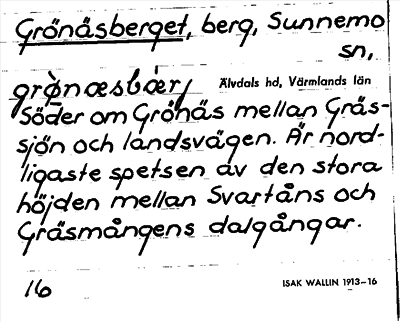 Grönäsberget, berg, Sunnemo
sn,
Älvdals hd, Värmlands län
Söder om Grönäs mellan Gräs-
sjön och landsvägen. Är nord-
ligaste spetsen av den stora
höjden mellan Svartåns och
Gräsmångens dalgångar.
16
ISAK WALLIN 1913–16